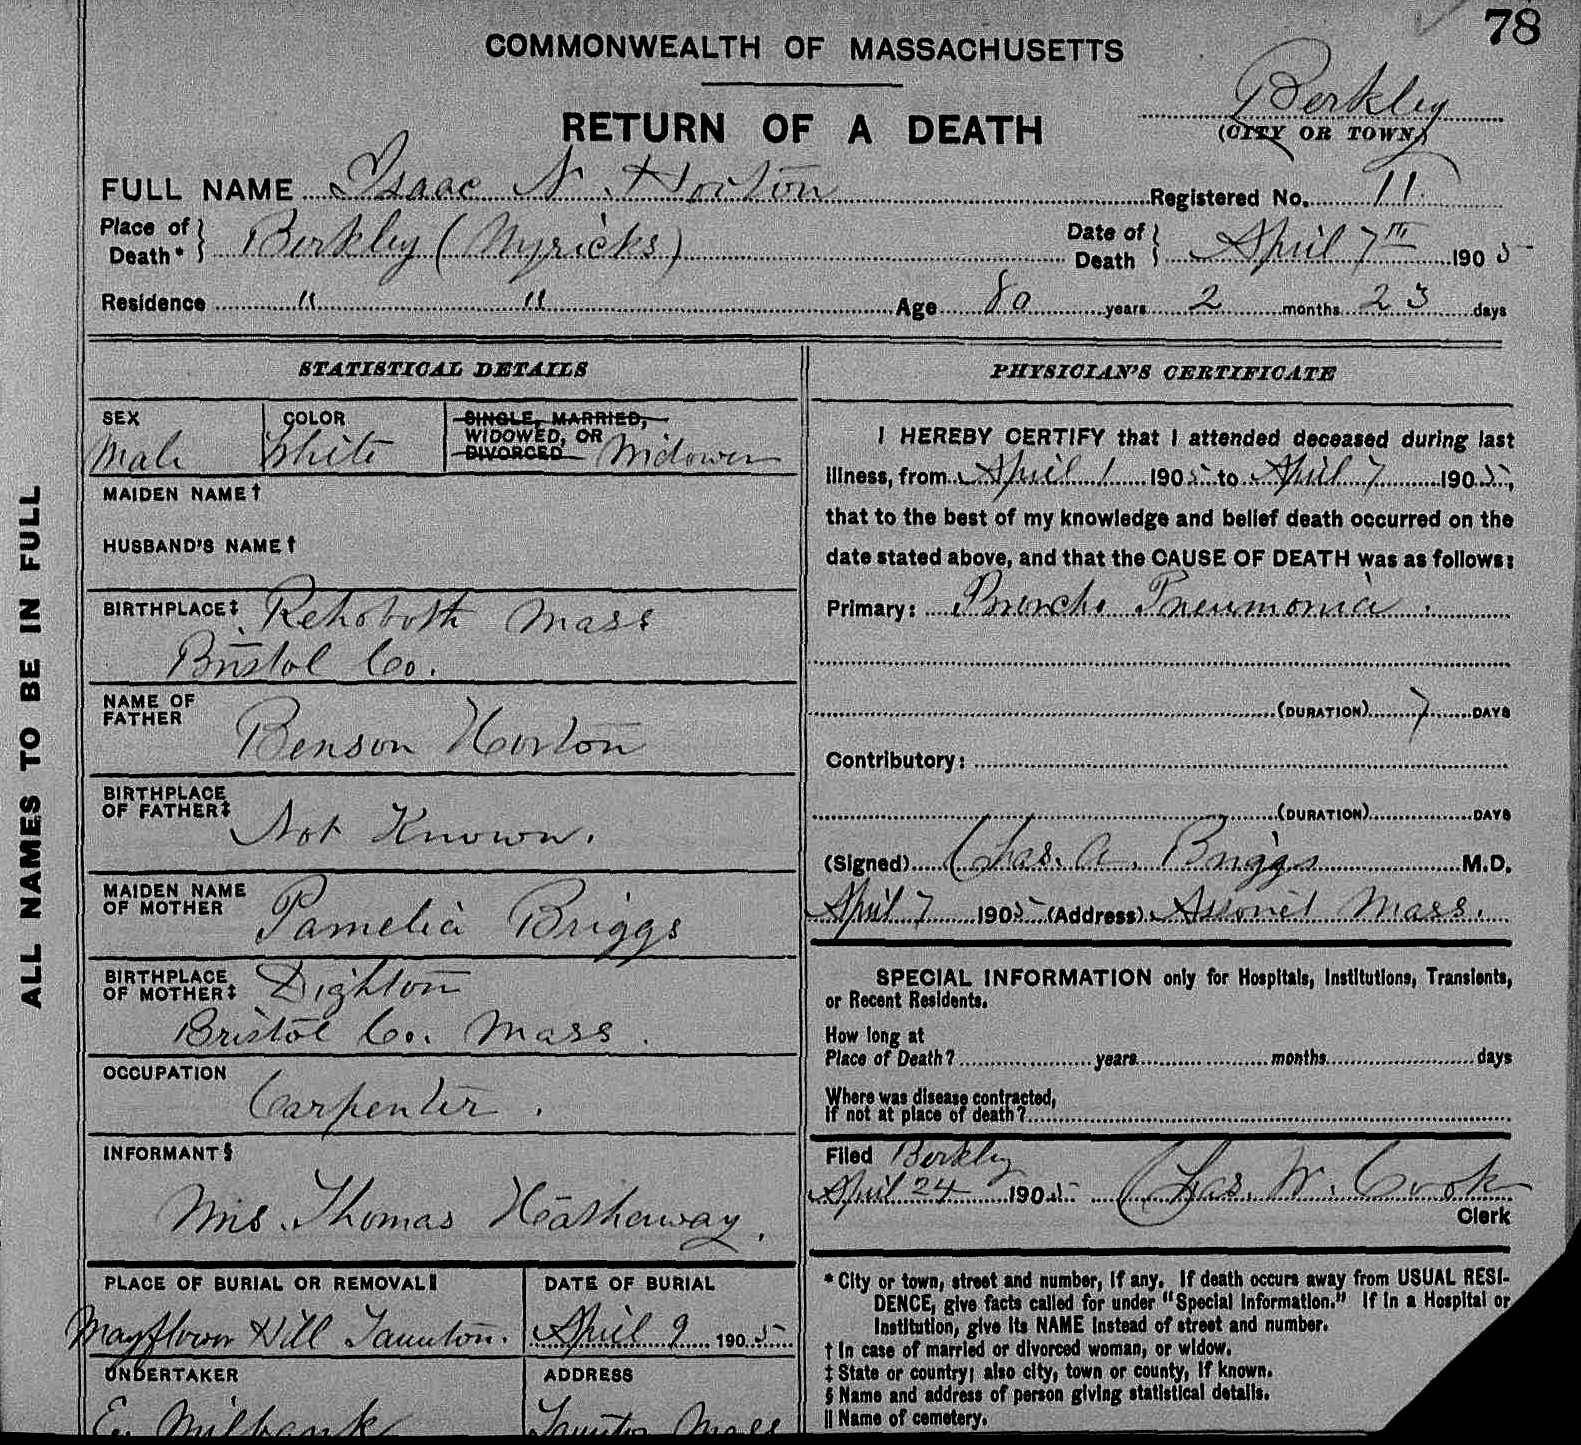 78
COMMONWEALTH OF MASSACHUSETTS
Berkley
RETURN OF A DEATH
(CITY OR TOWN)
FULL NAME Isaac N. Horton Registered No. 11
Place of Death* Berkley (Myricks) Date of Death April 7th 1905
Residence " " Age 80 years 2 months 23 days
ALL NAMES TO BE IN FULL
STATISTICAL DETAILS
SEX COLOR SINGLE, MARRIED,
WIDOWED, OR
DIVORCED
Male White Widower
MAIDEN NAME†
HUSBAND'S NAME†
BIRTHPLACE‡ Rehoboth Mass
Bristol Co.
NAME OF
FATHER
Benson Horton
BIRTHPLACE
OF FATHER‡
Not Known.
MAIDEN NAME
OF MOTHER
Pamelia Briggs
BIRTHPLACE
OF MOTHER‡ Dighton
Bristol Co. Mass.
OCCUPATION
Carpenter.
INFORMANT§
Mrs. Thomas Hathaway.
PLACE OF BURIAL OR REMOVAL‖ DATE OF BURIAL
Mayflower Hill Taunton. April 9 1905
UNDERTAKER ADDRESS
Milbank Taunton Mass
PHYSICIAN'S CERTIFICATE
I HEREBY CERTIFY that I attended deceased during last
illness, from April 1 1905 to April 7 1905,
that to the best of my knowledge and belief death occurred on the
date stated above, and that the CAUSE OF DEATH was as follows:
Primary: Broncho Pneumonia.
(DURATION) 7 DAYS
Contributory:
(DURATION) DAYS
(Signed) Chas. A. Briggs M.D.
April 7 1905 (Address) Assonet Mass.
SPECIAL INFORMATION only for Hospitals, Institutions, Transients,
or Recent Residents.
How long at
Place of Death? years months days
Where was disease contracted,
If not at place of death?
Filed Berkley
April 24 1905 Chas. W. Cook
Clerk
* City or town, street and number, if any. If death occurs away from USUAL RESI-
DENCE, give facts called for under "Special Information." If in a Hospital or
Institution, give its NAME instead of street and number.
† In case of married or divorced woman, or widow.
‡ State or country; also city, town or county, if known.
§ Name and address of person giving statistical details.
‖ Name of cemetery.